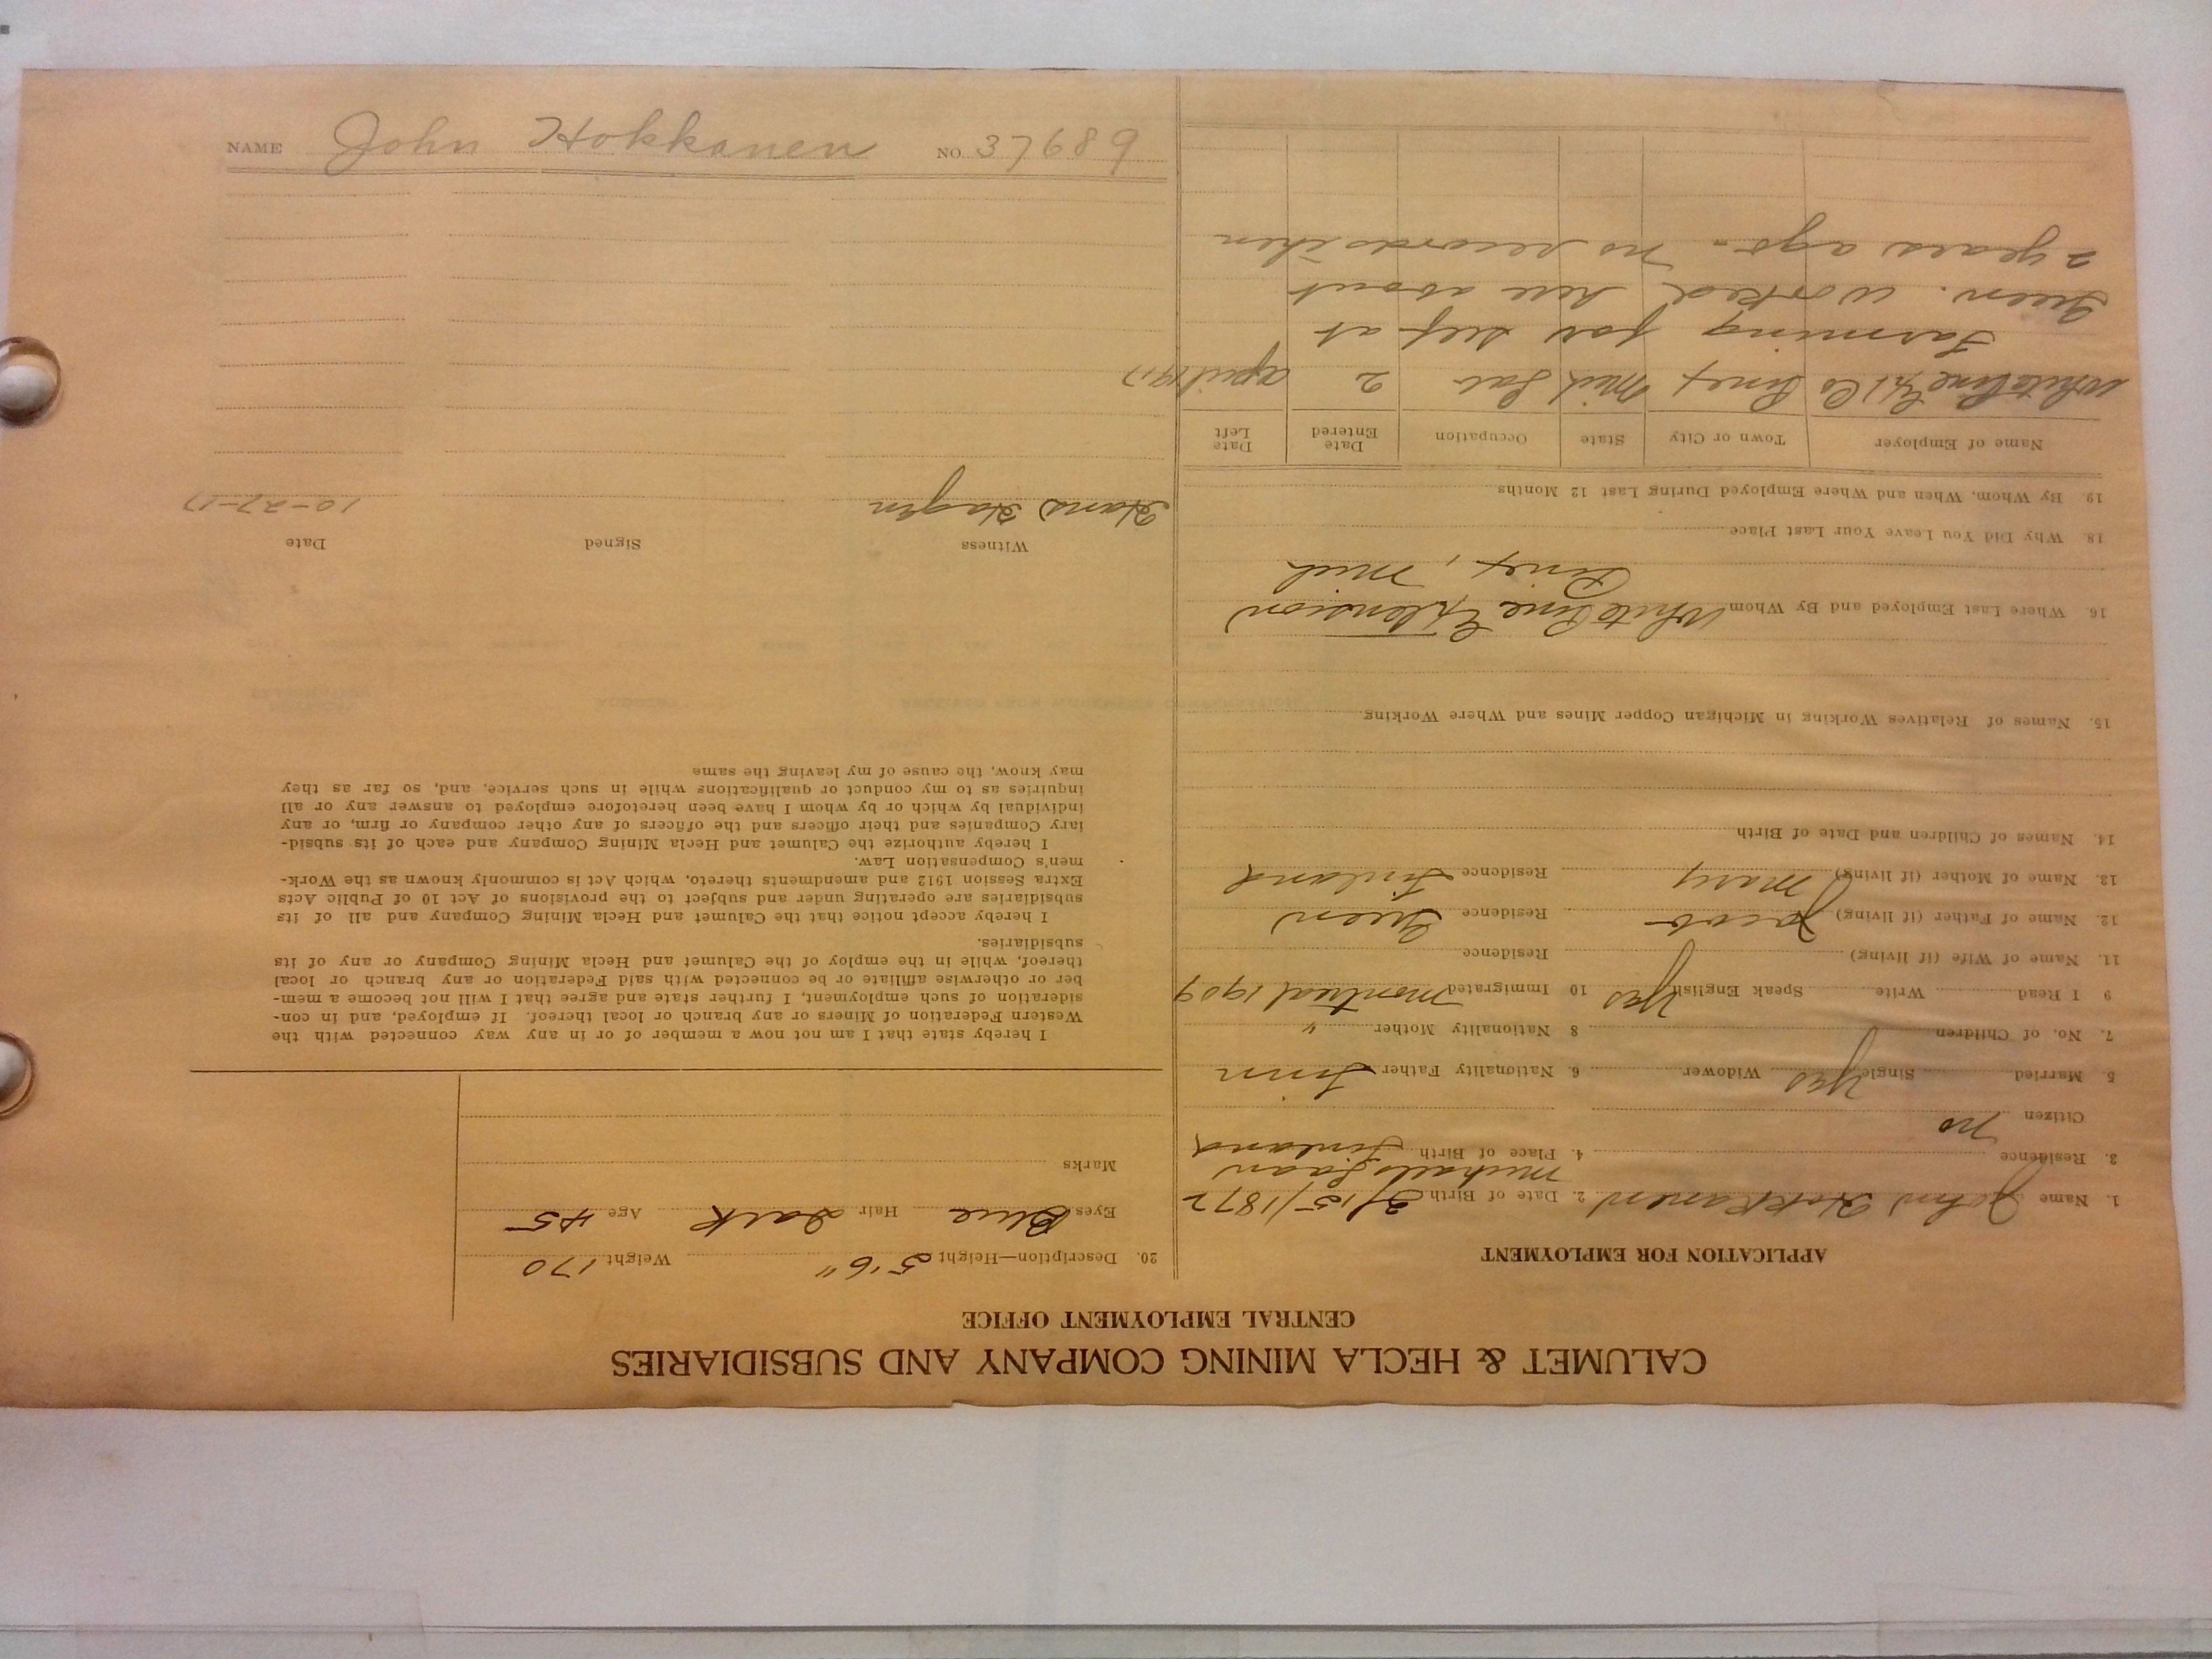 CALUMET & HECLA MINING COMPANY AND SUBSIDIARIES
CENTRAL EMPLOYMENT OFFICE
APPLICATION FOR EMPLOYMENT
1. Name John Hokkanen 2. Date of Birth 3/15/1872
3. Residence 4. Place of Birth Finland
Citizen no
5. Married Single Yes Widower 6. Nationality Father Finn
7. No. of Children 8 Nationality Mother "
9 I Read Write Speak English Yes 10 Immigrated Montreal 1909
11. Name of Wife (if living) Residence
12. Name of Father (if living) Jacob Residence Green
13. Name of Mother (if living) Mary Residence Finland
14. Names of Children and Date of Birth
15. Names of Relatives Working in Michigan Copper Mines and Where Working
16. Where Last Employed and By Whom White Pine Extension
, Mich
18. Why Did You Leave Your Last Place
19. By Whom, When and Where Employed During Last 12 Months
Name of Employer Town or City State Occupation Date Entered Date Left
White Pine Ex Co Mich Lab 2 April 1917
Farming for self at
Green. worked here about
2 years ago - no records then
20. Description—Height 5'6" Weight 170
Eyes Blue Hair Dark Age 45
Marks
I hereby state that I am not now a member of or in any way connected with the
Western Federation of Miners or any branch or local thereof. If employed, and in con-
sideration of such employment, I further state and agree that I will not become a mem-
ber or otherwise affiliate or be connected with said Federation or any branch or local
thereof, while in the employ of the Calumet and Hecla Mining Company or any of its
subsidiaries.
I hereby accept notice that the Calumet and Hecla Mining Company and all of its
subsidiaries are operating under and subject to the provisions of Act 10 of Public Acts
Extra Session 1912 and amendments thereto, which Act is commonly known as the Work-
men's Compensation Law.
I hereby authorize the Calumet and Hecla Mining Company and each of its subsid-
iary Companies and their officers and the officers of any other company or firm, or any
individual by which or by whom I have been heretofore employed to answer any or all
inquiries as to my conduct or qualifications while in such service, and, so far as they
may know, the cause of my leaving the same
Witness Signed Date
Hans Hagen 10-27-17
NAME John Hokkanen NO. 37689